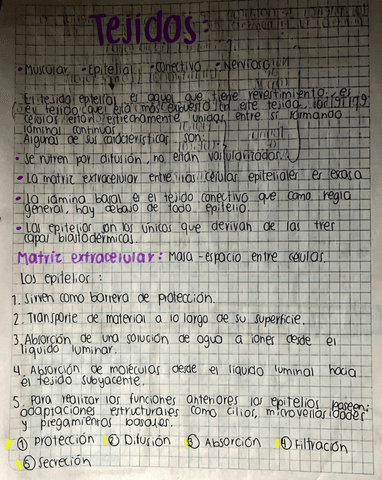 Tejidos:
• Muscular • Epitelial • Conectivo • Nervioso
El tejido epitelial es aquel que tiene revestimiento; es
el tejido que está más expuesto. En este tejido, las
células están estrechamente unidas entre sí formando
láminas continuas.
Algunas de sus características son:
• Se nutren por difusión, no están vascularizados.
• La matriz extracelular entre las células epiteliales es escasa
• La lámina basal es el tejido conectivo que como regla
general, hay debajo de todo epitelio.
• Los epitelios son los únicos que derivan de las tres
capas blastodérmicas.
Matriz extracelular: Masa - espacio entre células.
Los epitelios:
1. Sirven como barrera de protección.
2. Transporte de material a lo largo de su superficie.
3. Absorción de una solución de agua a iones desde el
líquido luminar.
4. Absorción de moléculas desde el líquido luminal hacia
el tejido subyacente.
5. Para realizar las funciones anteriores los epitelios poseen:
adaptaciones estructurales como cilios, microvellosidades
y plegamientos basales.
① Protección ② Difusión ③ Absorción ④ Filtración
⑤ Secreción